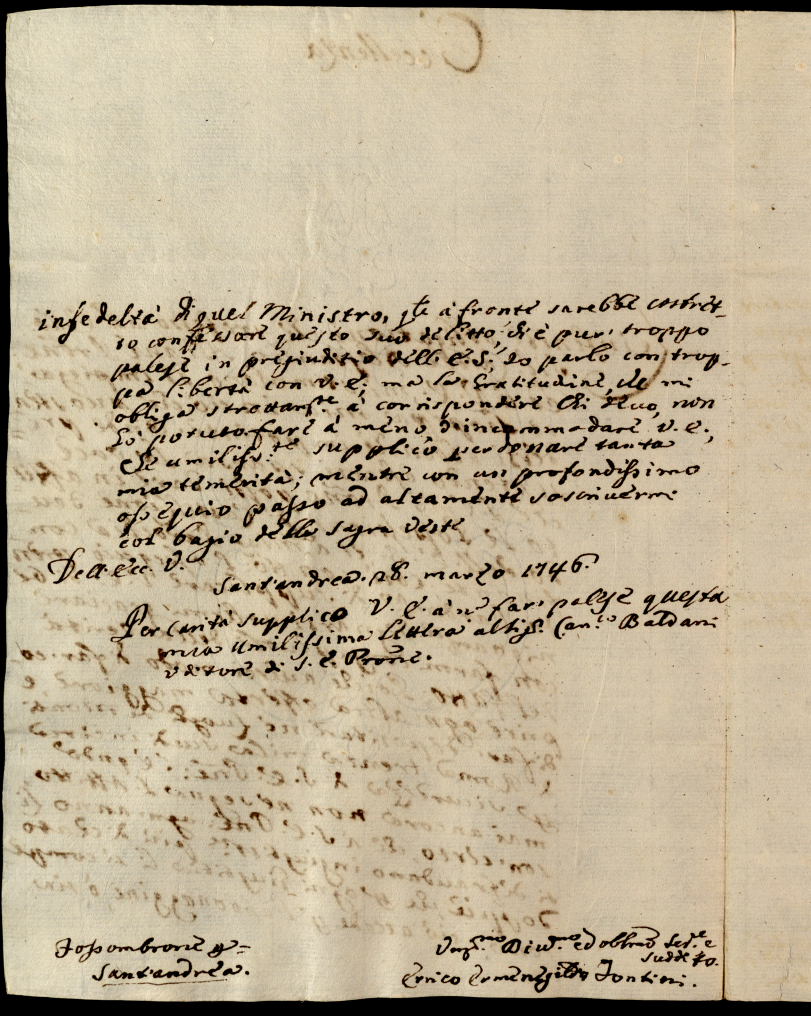 infedeltà di quel Ministro, qle à fronte sarebbe costret-
to confessare questo suo delitto, ch'è pur troppo
palese in pregiuditio dell' E. S.; Io parlo con trop-
pa libertà con V. E.; ma la Gratitudine, che mi
obliga à corrispondere chi devo, non
hò potuto fare à meno d'incommodare V. E.,
che umilisste supplico perdonare tanta
mia temerità; mentre con un profondissimo
ossequio passo ad altamente soscrivermi
col bagio della sagra Veste.
Dell' Ecc. V.
Sant'andrea 28. marzo 1746.
Per carità supplico V. E. à nò far palese questa
mia umilissima lettera al Can.co Baldani
Uditore di S. E. Prone.
Fossombrone p-
Sant'andrea.
Umo Divmo ed obblmo Serre e
sudd to.
Errico Ermenegildo Fontini.